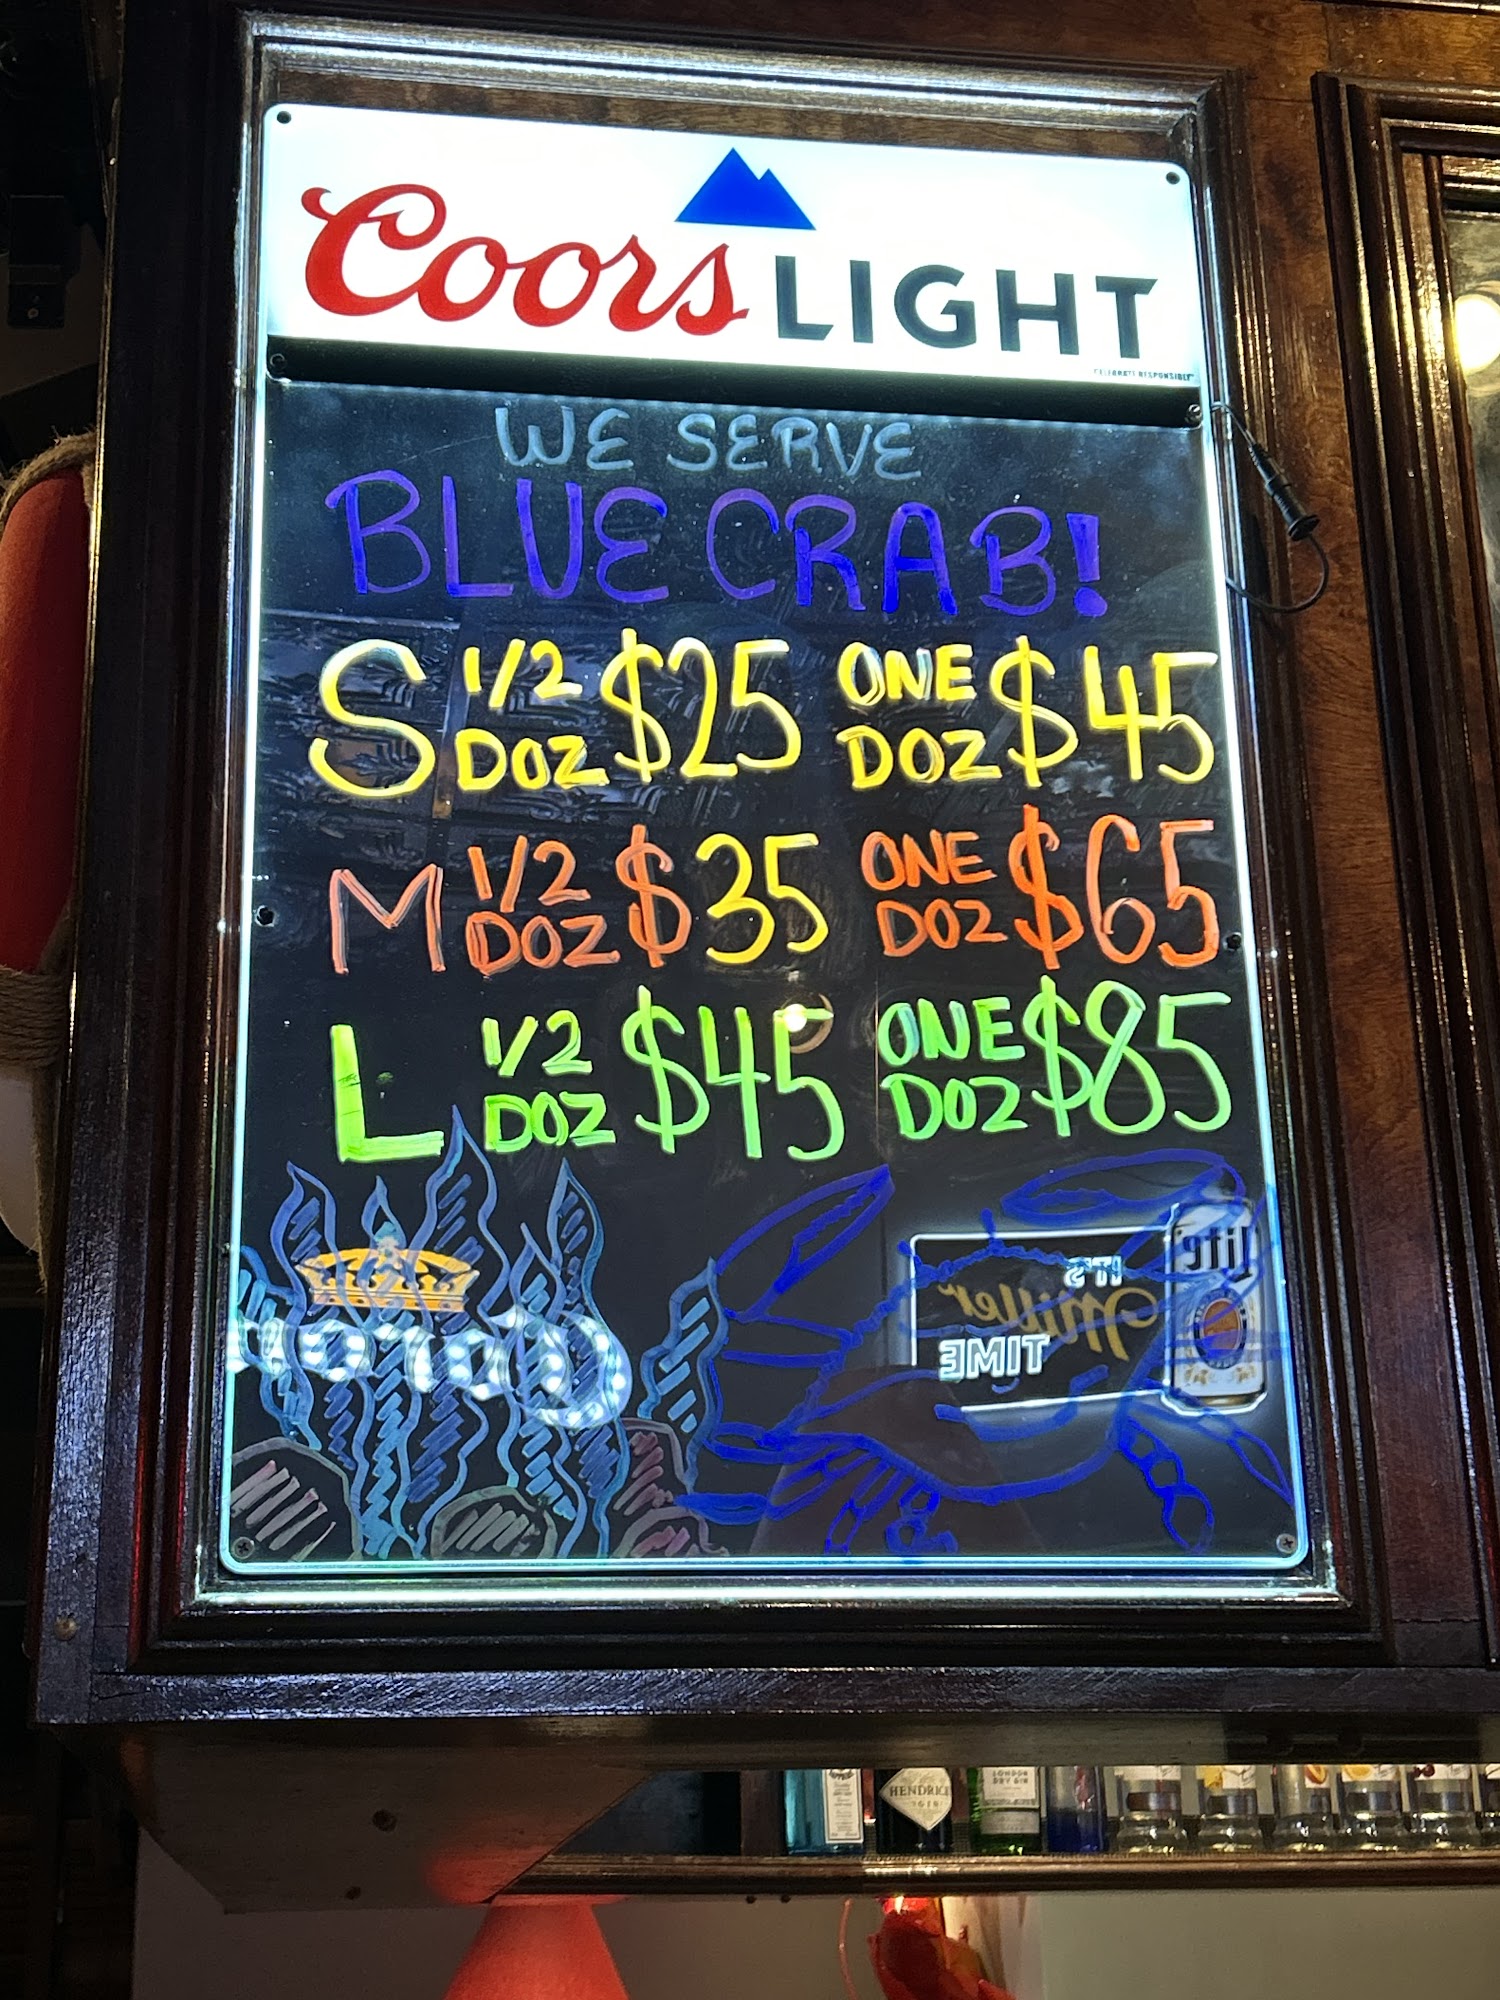 Coors LIGHT
CELEBRATE RESPONSIBLY
WE SERVE
BLUE CRAB!
S 1/2 DOZ $25 ONE DOZ $45
M 1/2 DOZ $35 ONE DOZ $65
L 1/2 DOZ $45 ONE DOZ $85
IT'S
Miller
TIME
Lite
Corona
HENDRICK
LONDON
DRY GIN